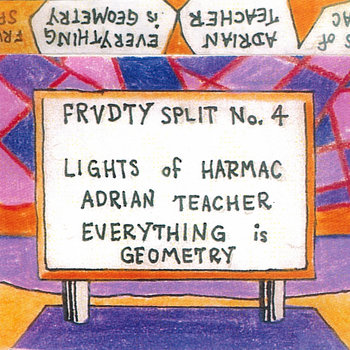 EVERYTHING
is GEOMETRY
ADRIAN
TEACHER
FRVDTY SPLIT No. 4
LIGHTS of HARMAC
ADRIAN TEACHER
EVERYTHING is
GEOMETRY